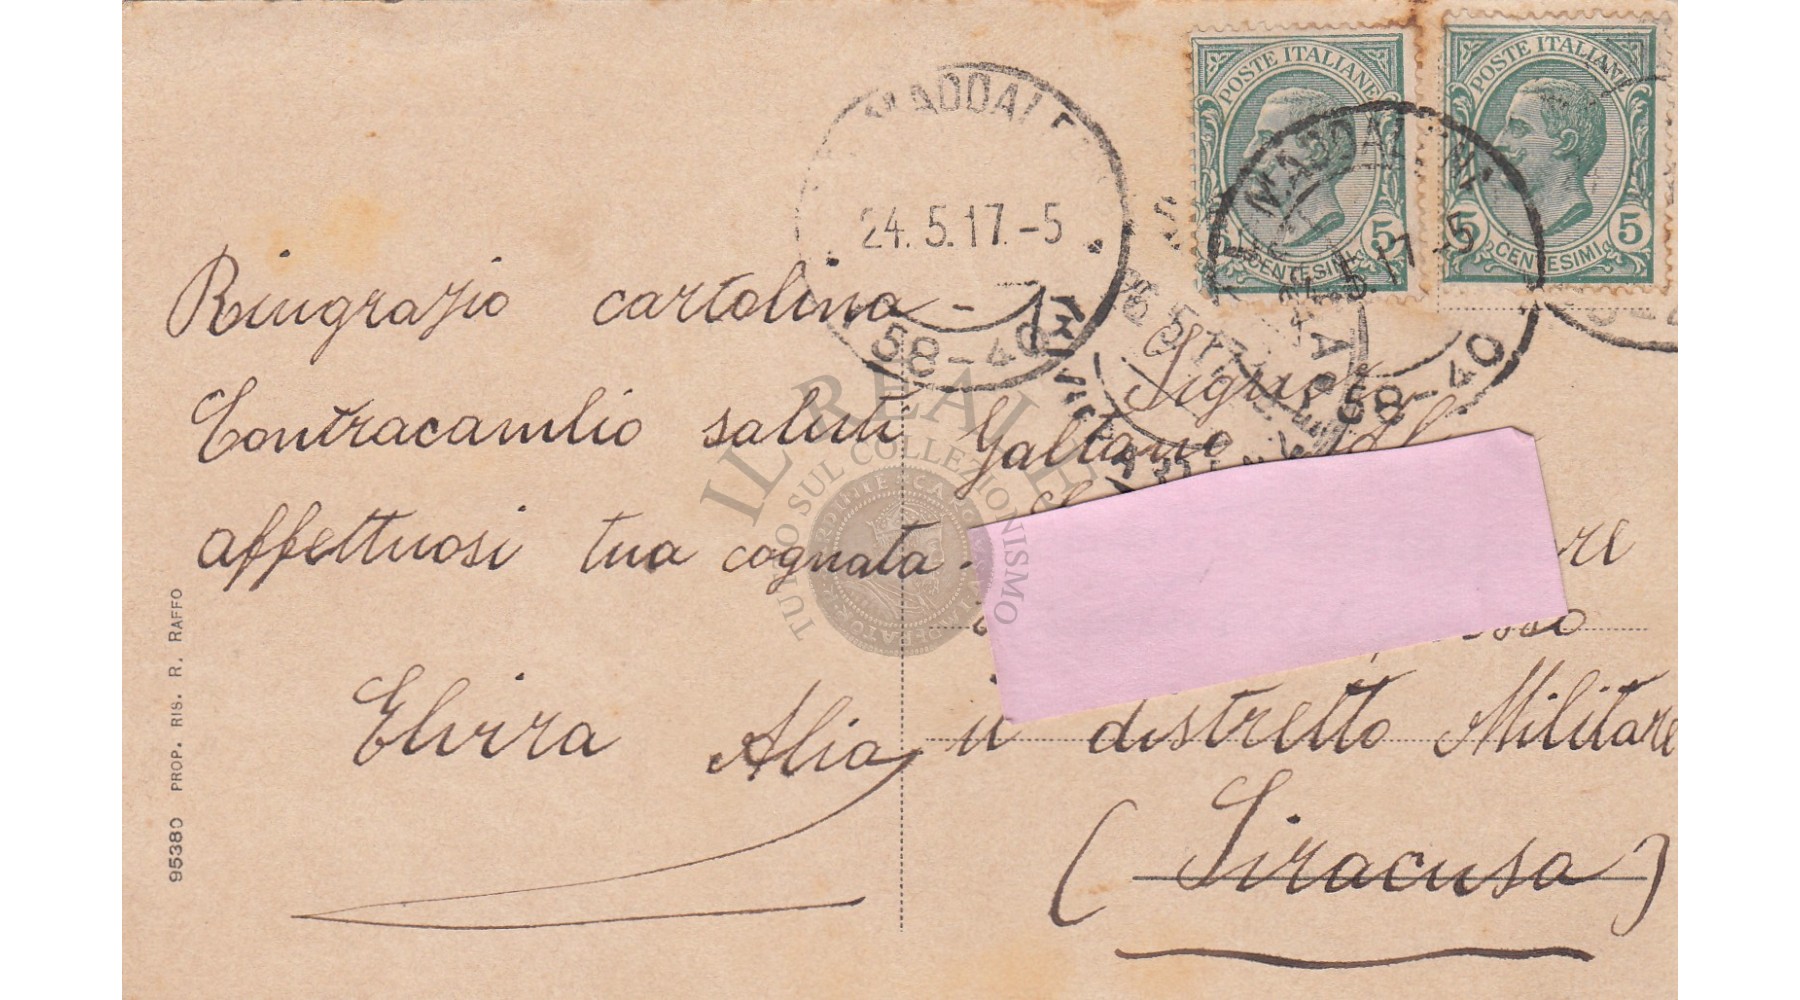 POSTE ITALIANE
5 CENTESIMI 5
POSTE ITALIANE
5 CENTESIMI 5
24.5.17.-5
58-40
58-40
Ringrazio cartolina -
Contracambio saluti
affettuosi tua cognata.
Elvira Alia
Signor
Gaetano
u distretto Militare
(Siracusa)
95380 PROP. RIS. R. RAFFO
IL REALE
TUTTO SUL COLLEZIONISMO